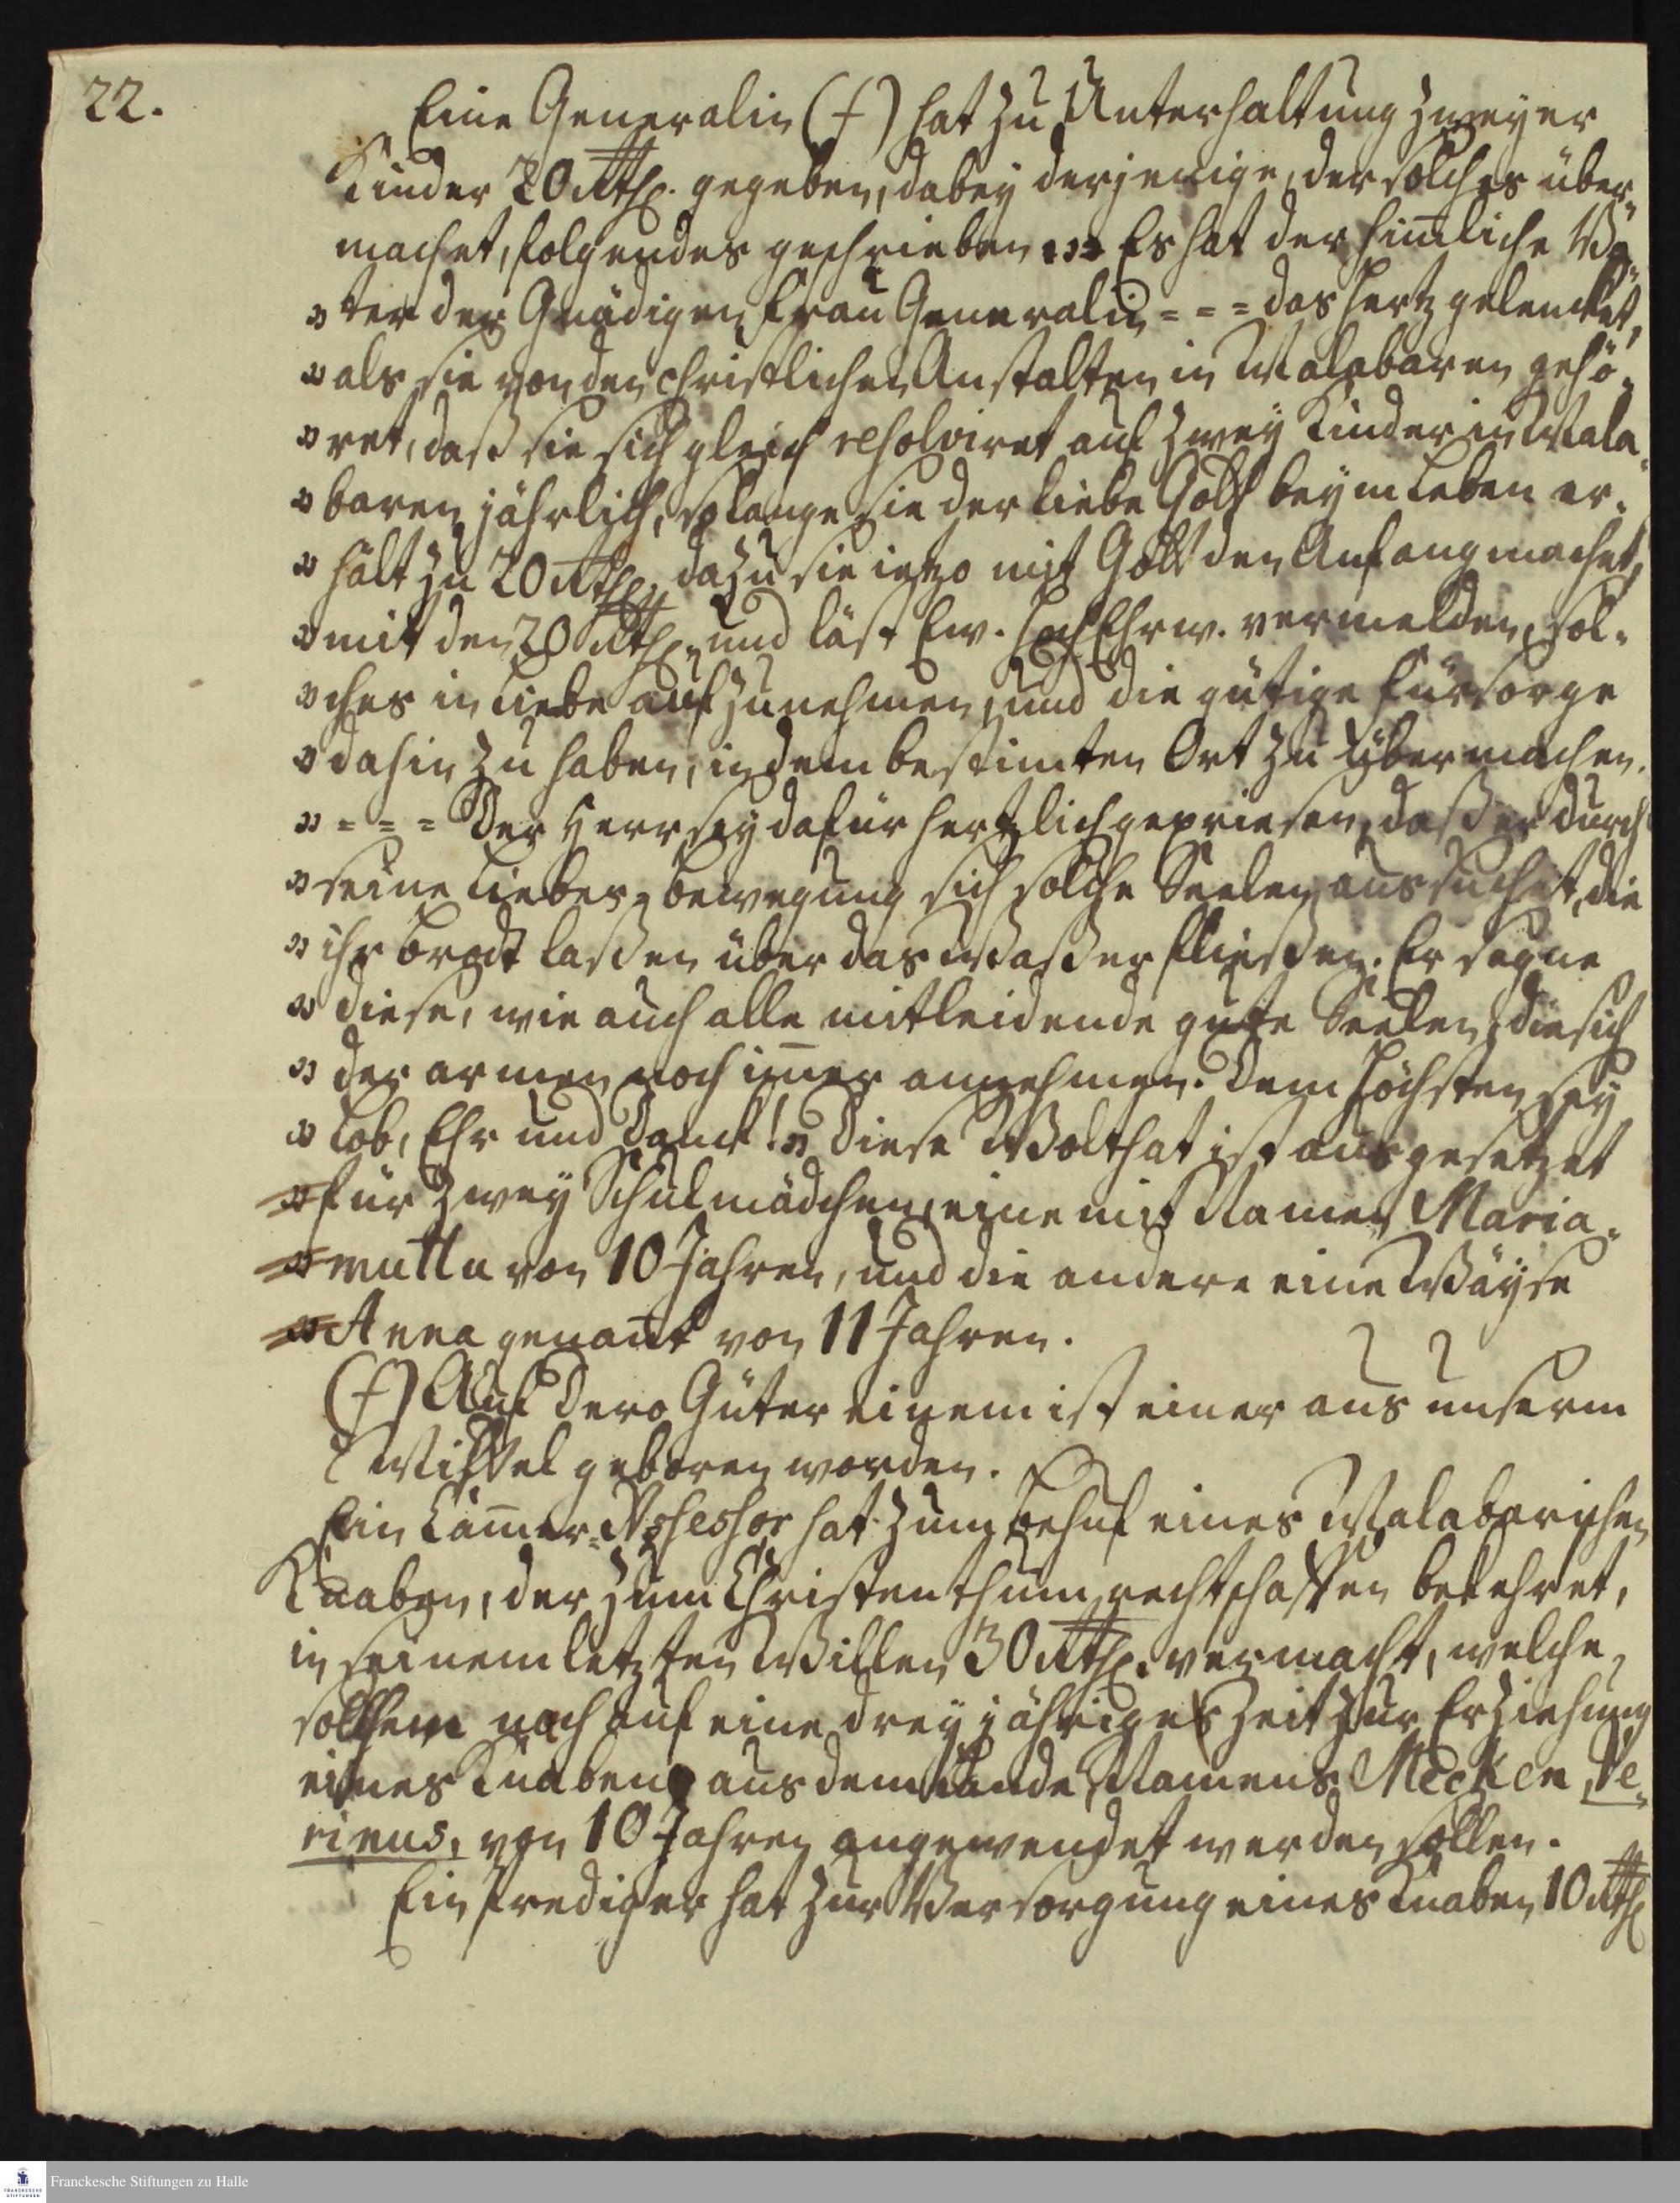 22.
Eine Generalin (†) hat zu Unterhaltung zweyer
Kinder 20 Rthl. gegeben, dabey derjenige, der solches über-
machet, folgendes geschrieben: „Es hat der himliche Va-
„ter der Gnädigen Frau Generalin - - - das Hertz gelencket,
„als sie von den christlichen Anstalten in Malabaren gehö-
„ret, daß sie sich gleich resolviret auf zwey Kinder in Mala-
„baren jährlich, so lange sie der liebe Gott beym Leben er-
„hält zu 20 Rthl., dazu sie ietzo mit Gott den Anfang machet,
„mit den 20 Rthl., und läst Ew. HochEhrw. vermelden, sol-
„ches in Liebe aufzunehmen, und die gütige Fürsorge
„dahin zu haben, in dem bestimten Ort zu übermachen.
„- - - Der Herr sey dafür hertzlich gepriesen, daß er durch
„seine Liebes-Bewegung sich solche Seelen aussuchet, die
„ihr Brodt laßen über das Waßer fließen. Er segne
„diese, wie auch alle mitleidende gute Seelen, die sich
„der armen noch imer annehmen. Dem Höchsten sey
„Lob, Ehr und Danck!„ Diese Wolthat ist ausgesetzet
„für zwey Schulmädchen, eine mit Namen Maria-
„muttu von 10 Jahren, und die andere eine Wäyse
„Anna genant von 11 Jahren.
(†) Auf Dero Güter einem ist einer aus unserm
Mittel geboren worden.
Ein Cammer-Assessor hat zum Behuf eines Malabarischen
Knaben, der zum Christenthum rechtschaffen bekehret,
in seinem letzten Willen 30 Rthl. vermacht, welche
solchem nach auf eine dreyjährige Zeit zur Erziehung
eines Knaben aus dem Lande, Namens Mecken, Ve-
rinus, von 10 Jahren angewendet werden sollen.
Ein Prediger hat zur Versorgung eines Knaben 10 Rthl
Franckesche Stiftungen zu Halle